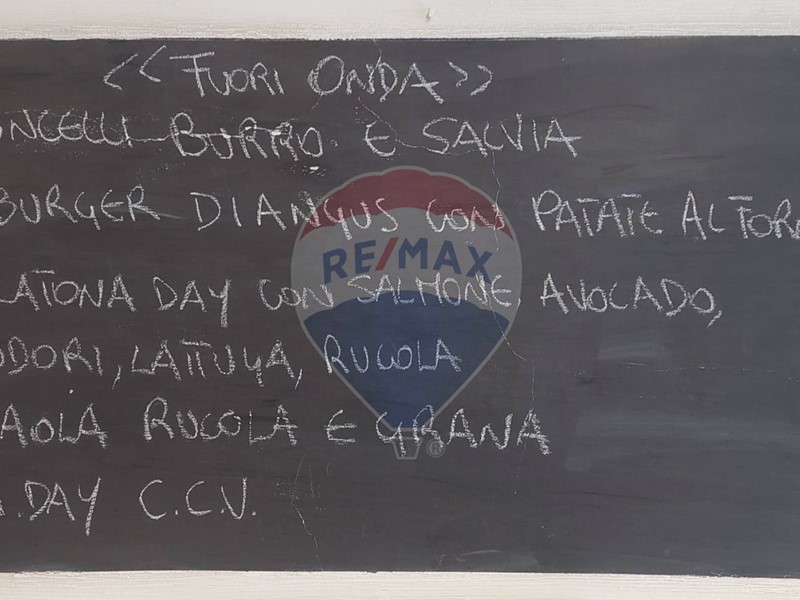 << FUORI ONDA >>
ONCELLI BURRO E SALVIA
BURGER DIANGUS CON PATATE AL FOR
LATONA DAY CON SALMONE, AVOCADO,
ODORI, LATTUGA, RUCOLA
AOLA RUCOLA E GRANA
.DAY C.C.V.
RE/MAX